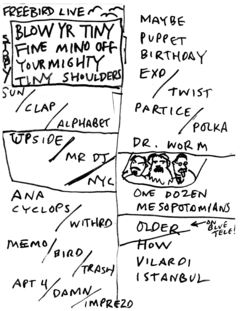 FREEBIRD LIVE
STORY
BLOW YR TINY
FINE MIND OFF
YOUR MIGHTY
TINY SHOULDERS
SUN
CLAP
ALPHABET
UPSIDE
MR DJ
NYC
ANA
CYCLOPS
WITHRD
MEMO
BIRD
TRASH
APT 4
DAMN
IMPREZO
MAYBE
PUPPET
BIRTHDAY
EXD
TWIST
PARTICE
POLKA
DR. WORM
ONE DOZEN
MESOPOTOMIANS
OLDER
ON BLUE TELE!
HOW
VILARDI
ISTANBUL